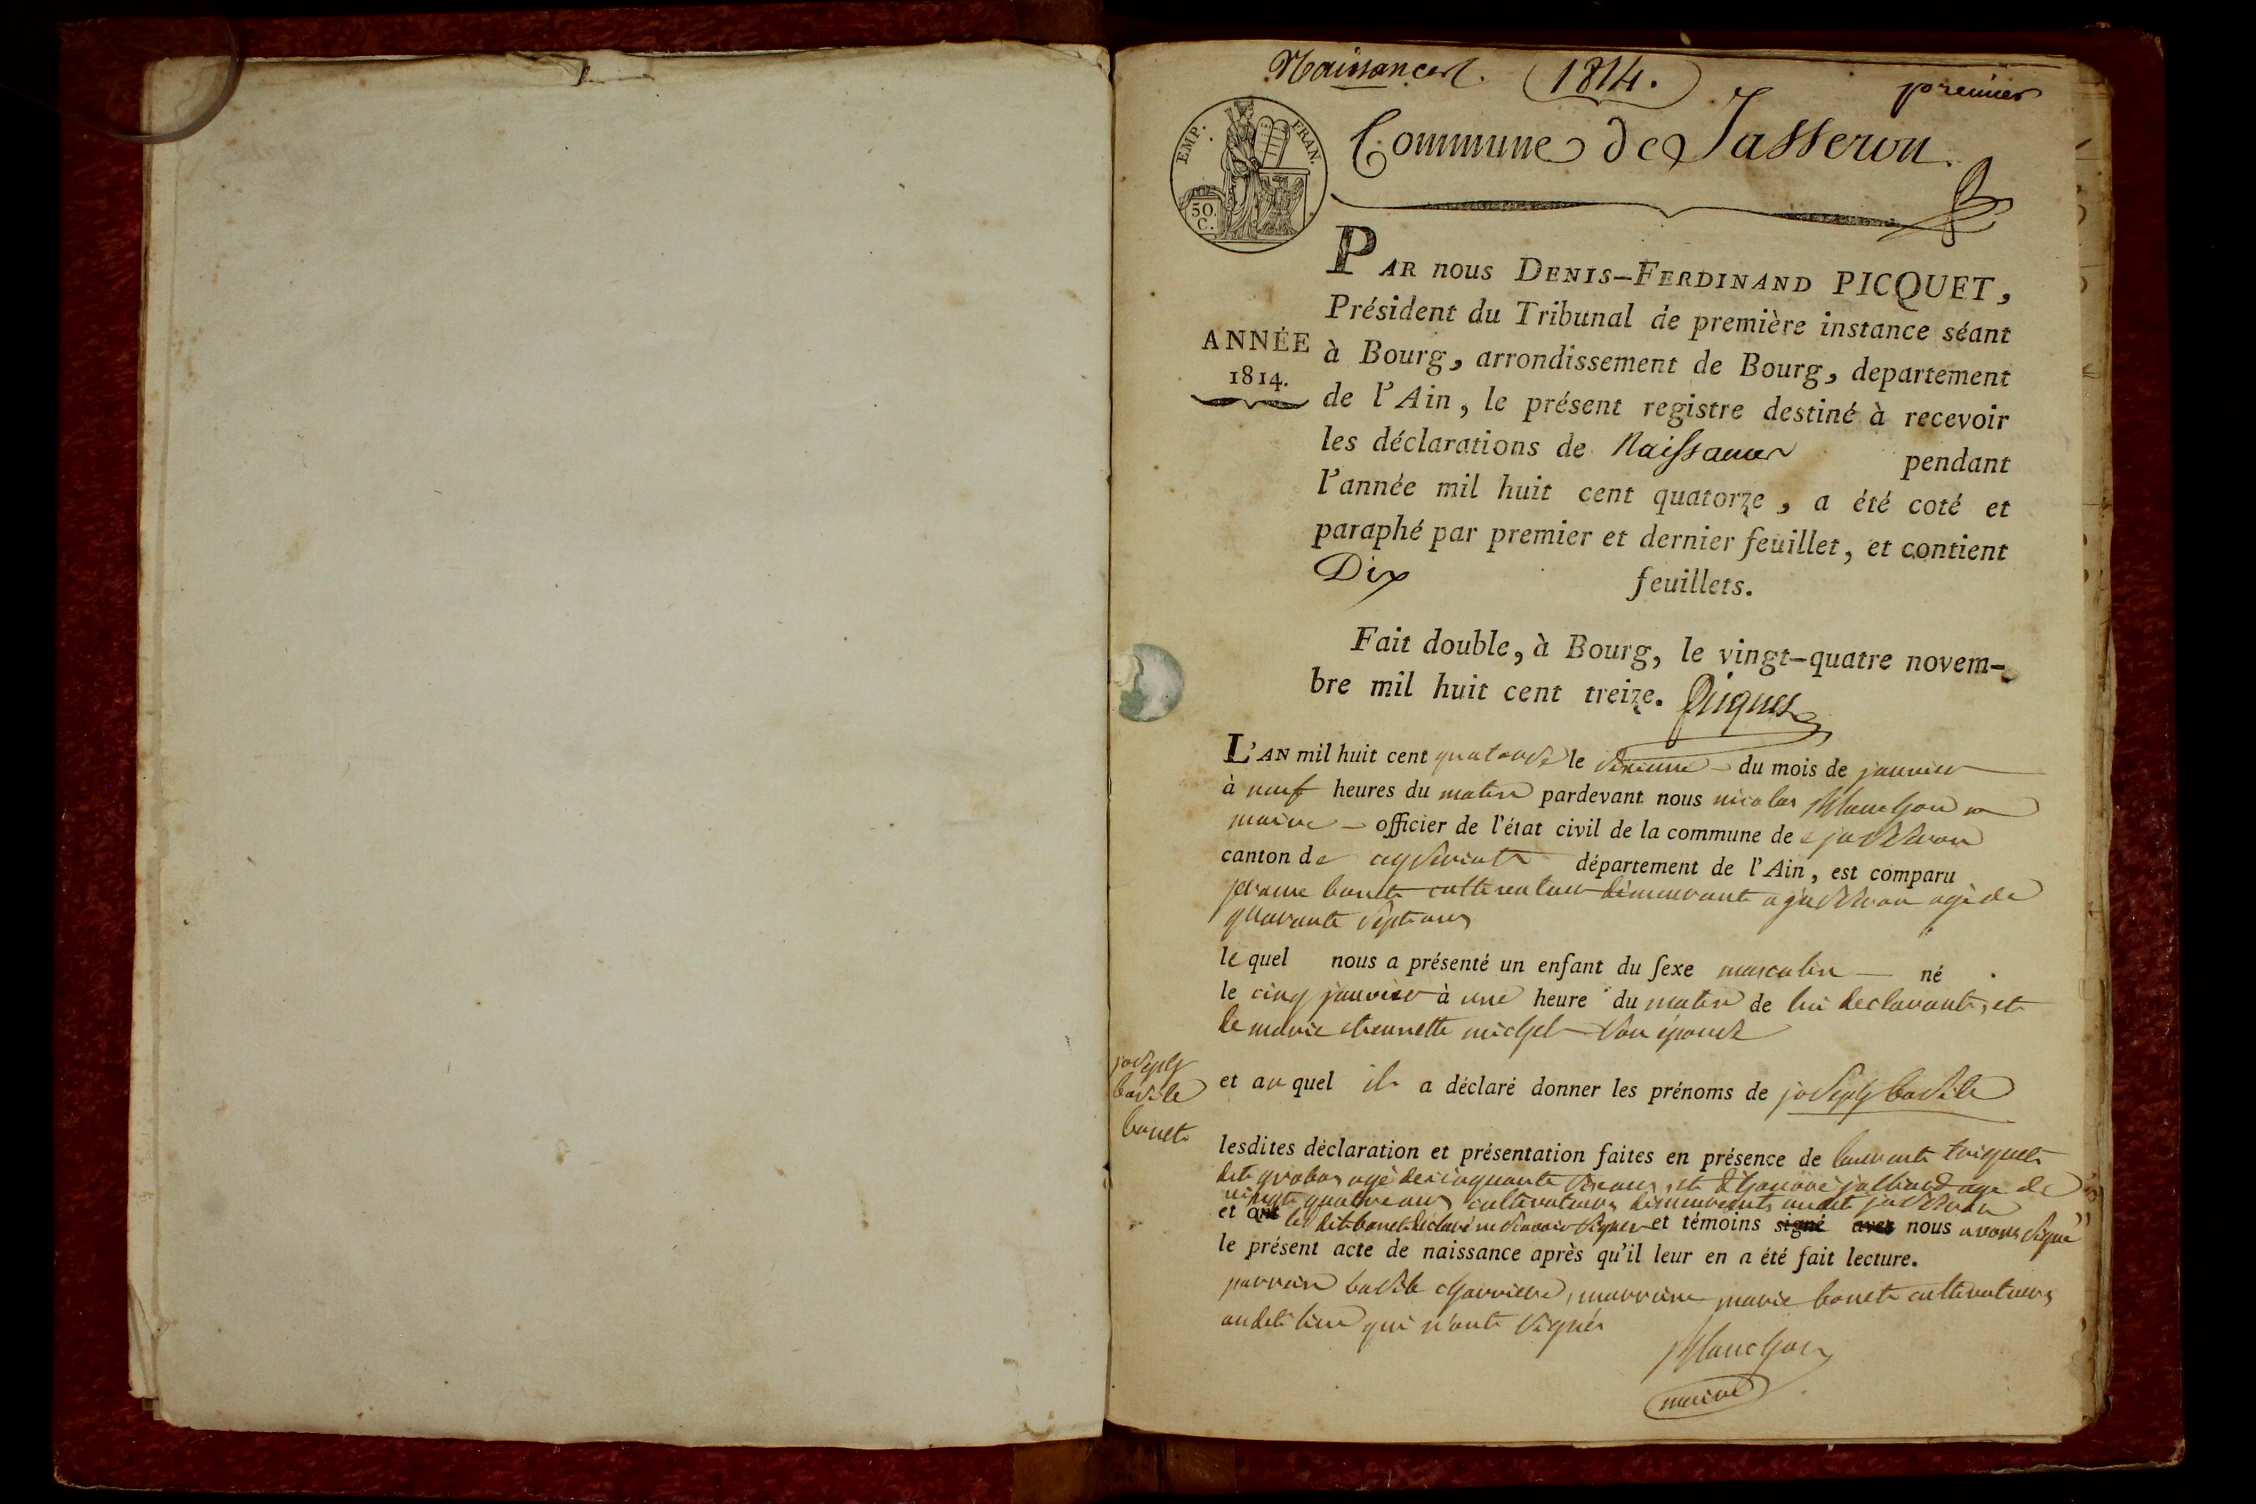 Naissances. 1814. premier
EMP. FRAN.
50. C.
Commune de Jasseron.
PAR nous DENIS-FERDINAND PICQUET,
Président du Tribunal de première instance séant
ANNÉE
1814.
à Bourg, arrondissement de Bourg, departement
de l'Ain, le présent registre destiné à recevoir
les déclarations de Naissances pendant
l'année mil huit cent quatorze, a été coté et
paraphé par premier et dernier feuillet, et contient
Dix feuillets.
Fait double, à Bourg, le vingt-quatre novem-
bre mil huit cent treize. Picquet
L'AN mil huit cent quatorze le sixieme du mois de janvier
à neuf heures du matin pardevant nous nicolas
maire officier de l'état civil de la commune de jasseron
canton de département de l'Ain, est comparu
bonet cultivateur demeurant a jasseron agé de
quarante sept ans
le quel nous a présenté un enfant du sexe masculin né
le cinq janvier à une heure du matin de lui declarant, et
de marie etiennette michel son épouse
joseph
basile
bonet
et au quel il a déclaré donner les prénoms de joseph basile
lesdites déclaration et présentation faites en présence de laurent
dit agé de cinquante six ans, et agé de
vingt quatre ans cultivateurs demeurants audit jasseron
et ont les dit bonet declaré ne savoir signer et témoins signé avec nous avons signé
le présent acte de naissance après qu'il leur en a été fait lecture.
parrain basile charriere, marraine marie bonet cultivateurs
audit lieu qui n'ont signés
maire